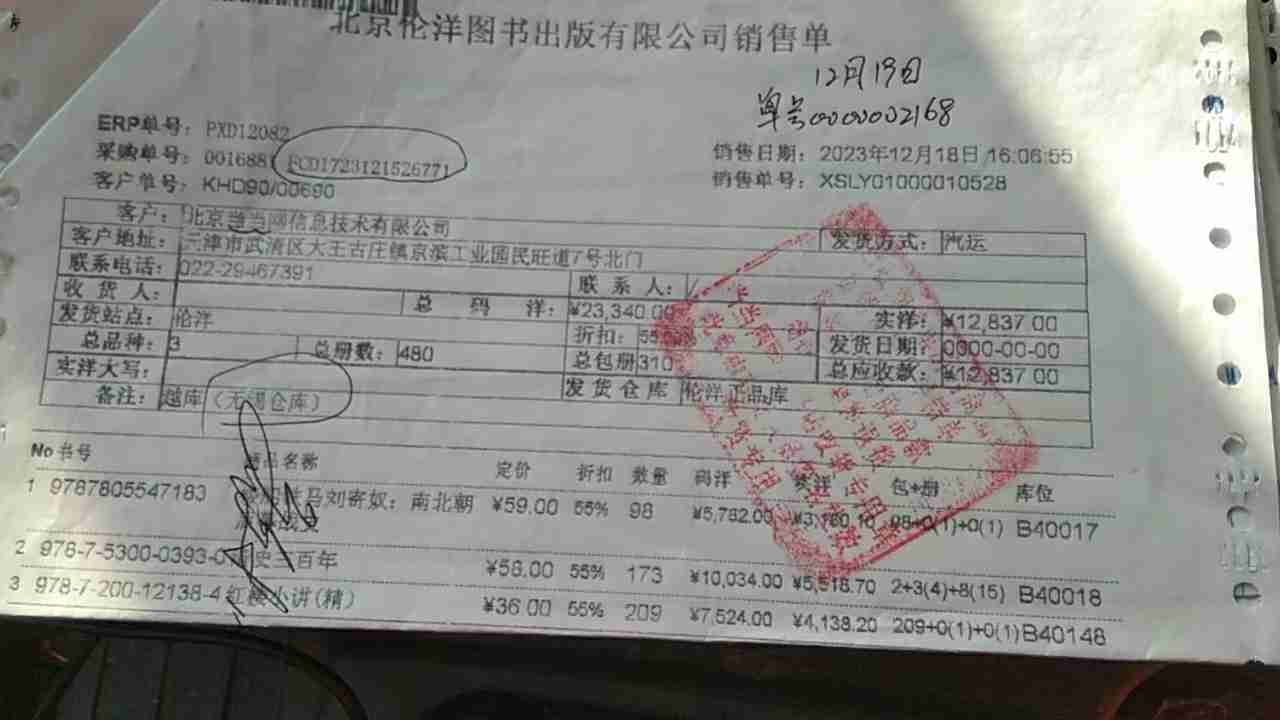 北京伦洋图书出版有限公司销售单
12月19日
单号0000002168
ERP单号: PXD12082
采购单号: 0016881 ECD1723121526771
客户单号: KHD90/00690
销售日期: 2023年12月18日 16:06:55
销售单号: XSLY01000010528
客户: 北京当当网信息技术有限公司 发货方式: 汽运
客户地址: 天津市武清区大王古庄镇京滨工业园民旺道7号北门
联系电话: 022-29467391 联系人: /
收货人: 总码洋: ¥23,340.00 实洋: ¥12,837.00
发货站点: 伦洋 折扣: 发货日期: 0000-00-00
总品种: 3 总册数: 480 总包册 310 总应收款: ¥12,837.00
实洋大写: 发货仓库 伦洋正品库
备注: 越库(无锡仓库)
No 书号 商品名称 定价 折扣 数量 码洋 实洋 包*册 库位
1 9787805547183 刘寄奴:南北朝 ¥59.00 55% 98 ¥5,782.00 B40017
2 978-7-5300-0393- 史三百年 ¥58.00 55% 173 ¥10,034.00 ¥5,518.70 2+3(4)+8(15) B40018
3 978-7-200-12138-4 红楼小讲(精) ¥36.00 55% 209 ¥7,524.00 ¥4,138.20 209+0(1)+0(1) B40148